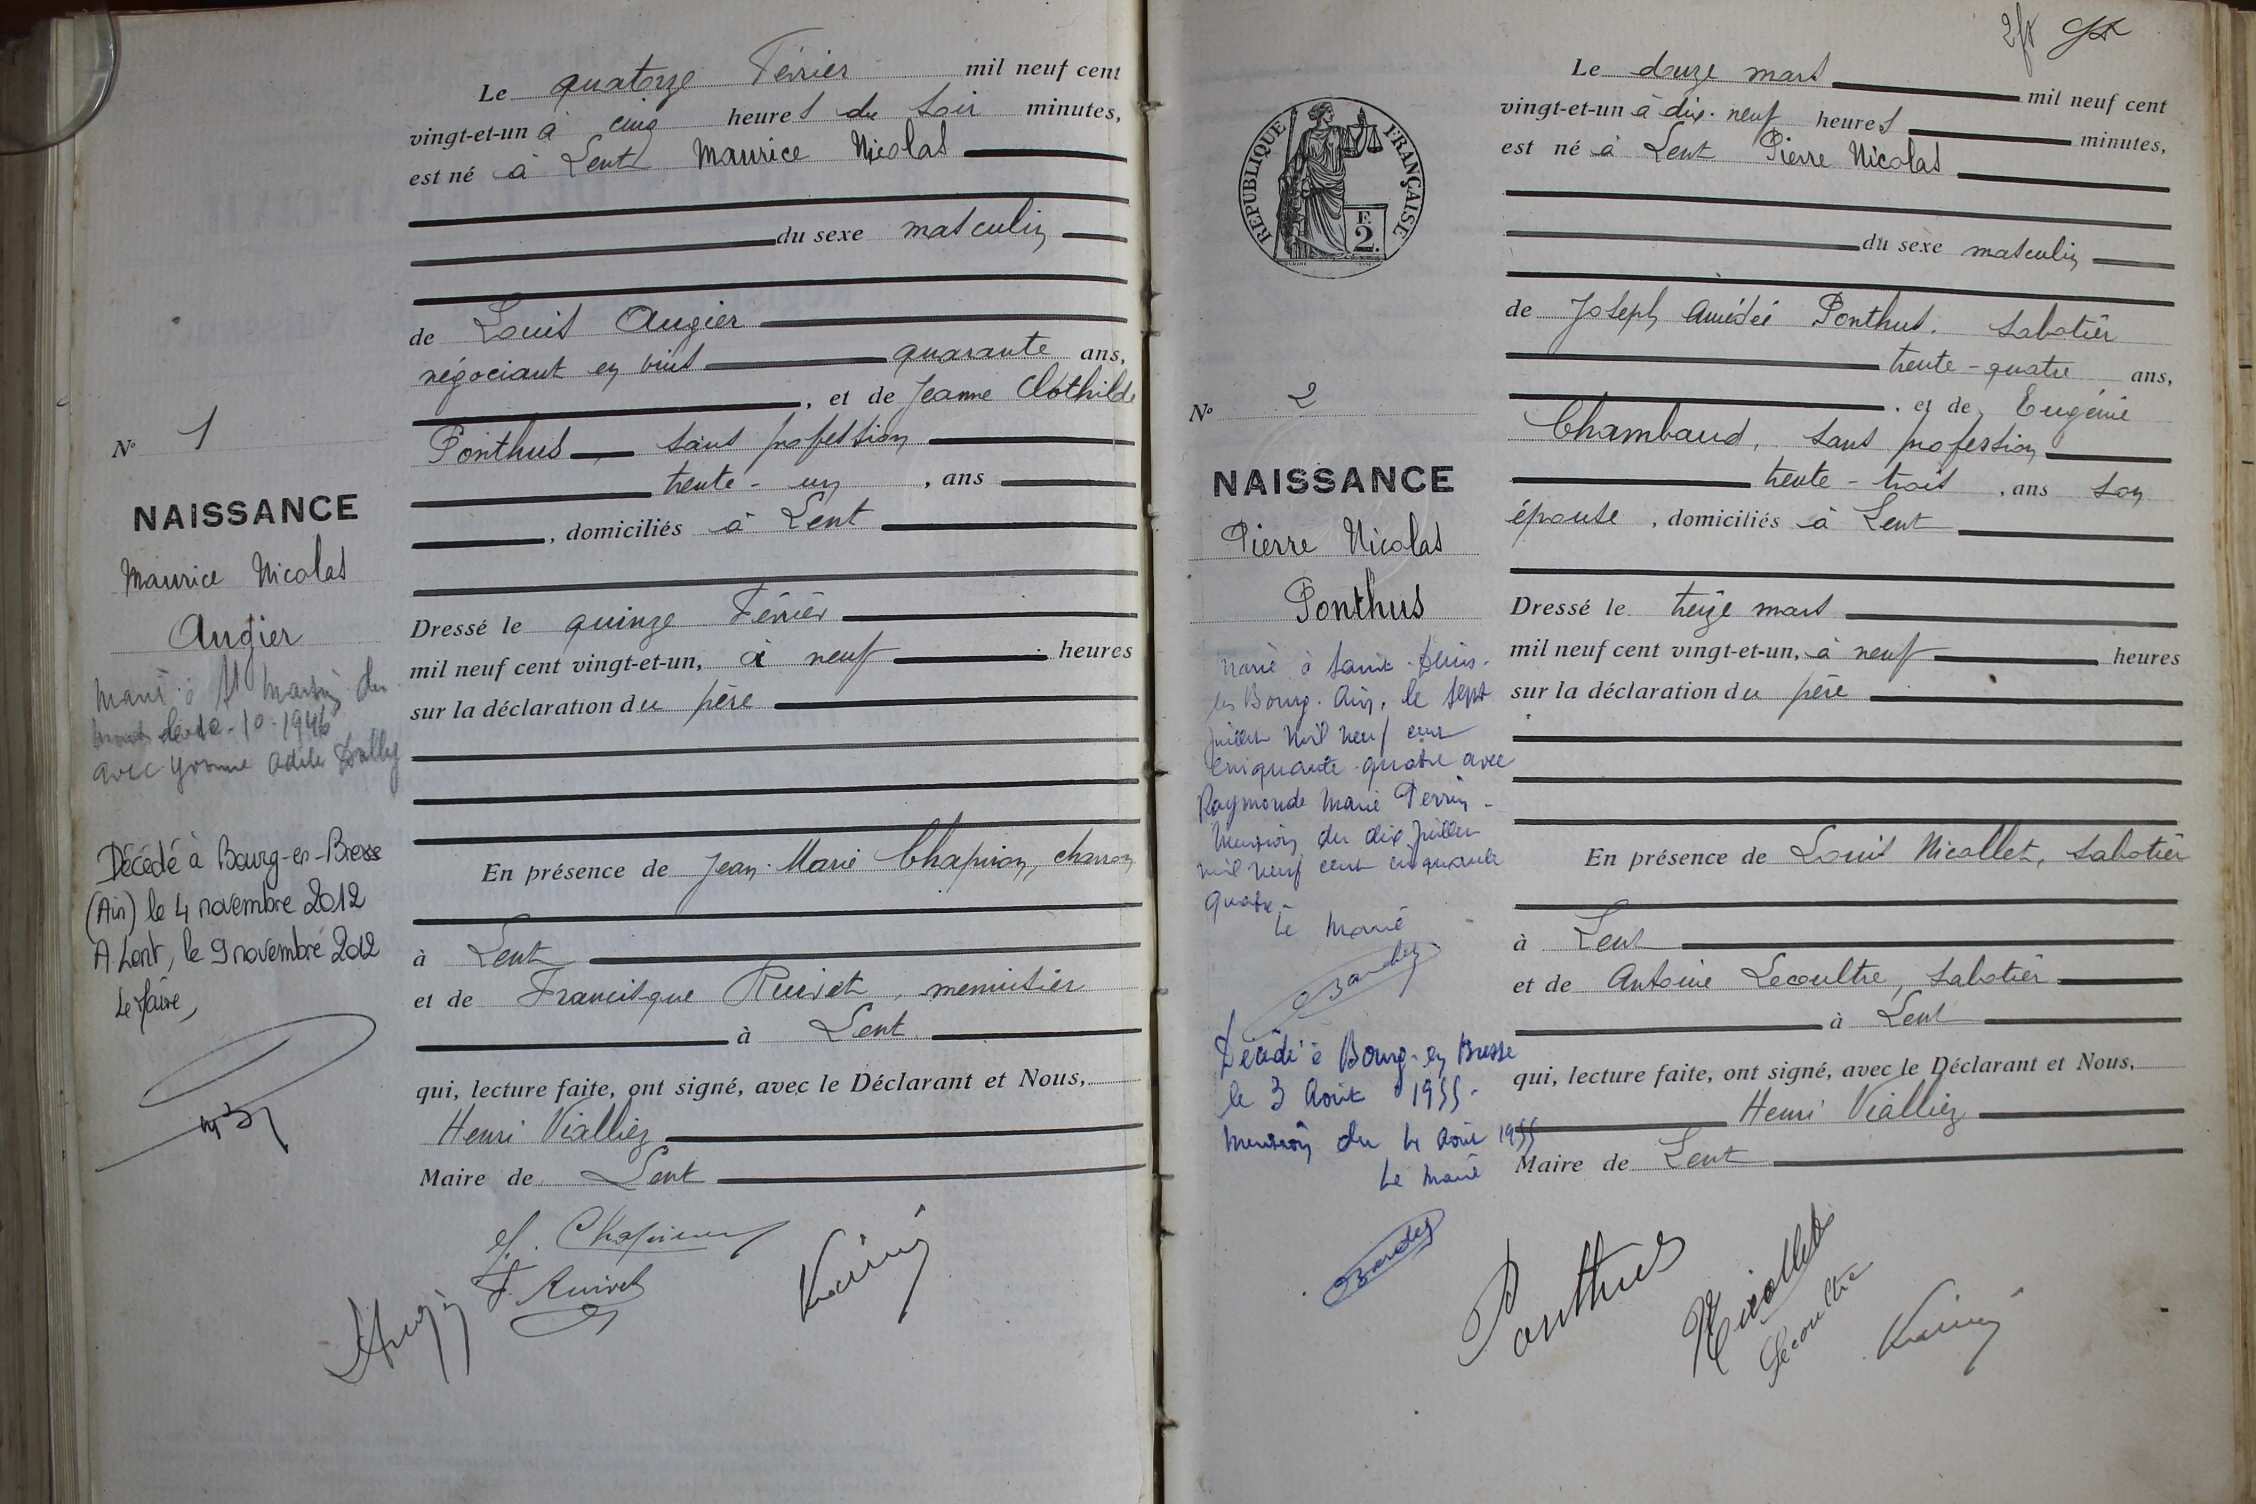 Le quatorze Février mil neuf cent
vingt-et-un à cinq heures du soir minutes,
est né à Lent Maurice Nicolas
du sexe masculin
de Louis Augier
négociant en vins quarante ans,
, et de Jeanne Clothilde
Ponthus, sans profession
trente-un , ans
, domiciliés à Lent
Dressé le quinze Février
mil neuf cent vingt-et-un, à neuf heures
sur la déclaration du père
En présence de Jean-Marie Chapiron, charron
à Lent
et de Francisque Ruivet, menuisier
à Lent
qui, lecture faite, ont signé, avec le Déclarant et Nous,
Henri Viallier
Maire de Lent
F. Ruivet
No 1
NAISSANCE
Maurice Nicolas
Augier
Marié à St Martin du
Mont le 12-10-1946
avec Yvonne Adèle
Décédé à Bourg-en-Bresse
(Ain) le 4 novembre 2012
A Lent, le 9 novembre 2012
Le Maire,
2
RÉPUBLIQUE FRANÇAISE
F.
2.
Le douze mars mil neuf cent
vingt-et-un à dix-neuf heures minutes,
est né à Lent Pierre Nicolas
du sexe masculin
de Joseph Amédée Ponthus. sabotier
trente-quatre ans,
, et de Eugénie
Chambaud, sans profession
trente-trois , ans son
épouse , domiciliés à Lent
Dressé le treize mars
mil neuf cent vingt-et-un, à neuf heures
sur la déclaration du père
En présence de Louis Nicollet, sabotier
à Lent
et de Antoine Lecoultre, sabotier
à Lent
qui, lecture faite, ont signé, avec le Déclarant et Nous,
Henri Viallier
Maire de Lent
Ponthus
Nicollet
Lecoultre
No 2
NAISSANCE
Pierre Nicolas
Ponthus
Marié à Saint-Denis-
les Bourg. Ain, le sept
juillet mil neuf cent
cinquante-quatre avec
Raymonde Marie Perrin -
Mention du dix juillet
mil neuf cent cinquante
quatre -
Le Maire
Décédé à Bourg-en Bresse
le 3 Août 1955 -
Mention du 4 Août 1955
Le Maire